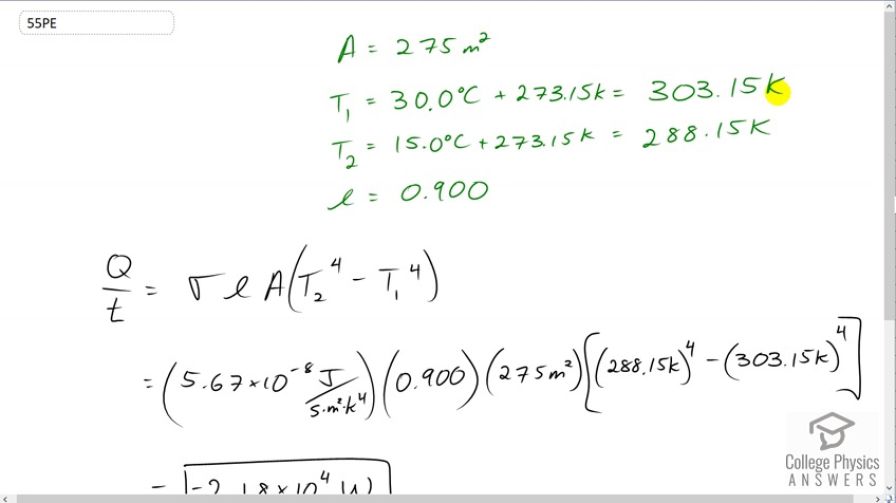 55PE
A = 275 m²
T₁ = 30.0°C + 273.15K = 303.15K
T₂ = 15.0°C + 273.15K = 288.15K
e = 0.900
Q/t = σ e A(T₂⁴ - T₁⁴)
= (5.67×10⁻⁸ J/s·m²·K⁴)(0.900)(275m²)[(288.15K)⁴ - (303.15K)⁴]
= -2.18×10⁴ W
College Physics
ANSWERS